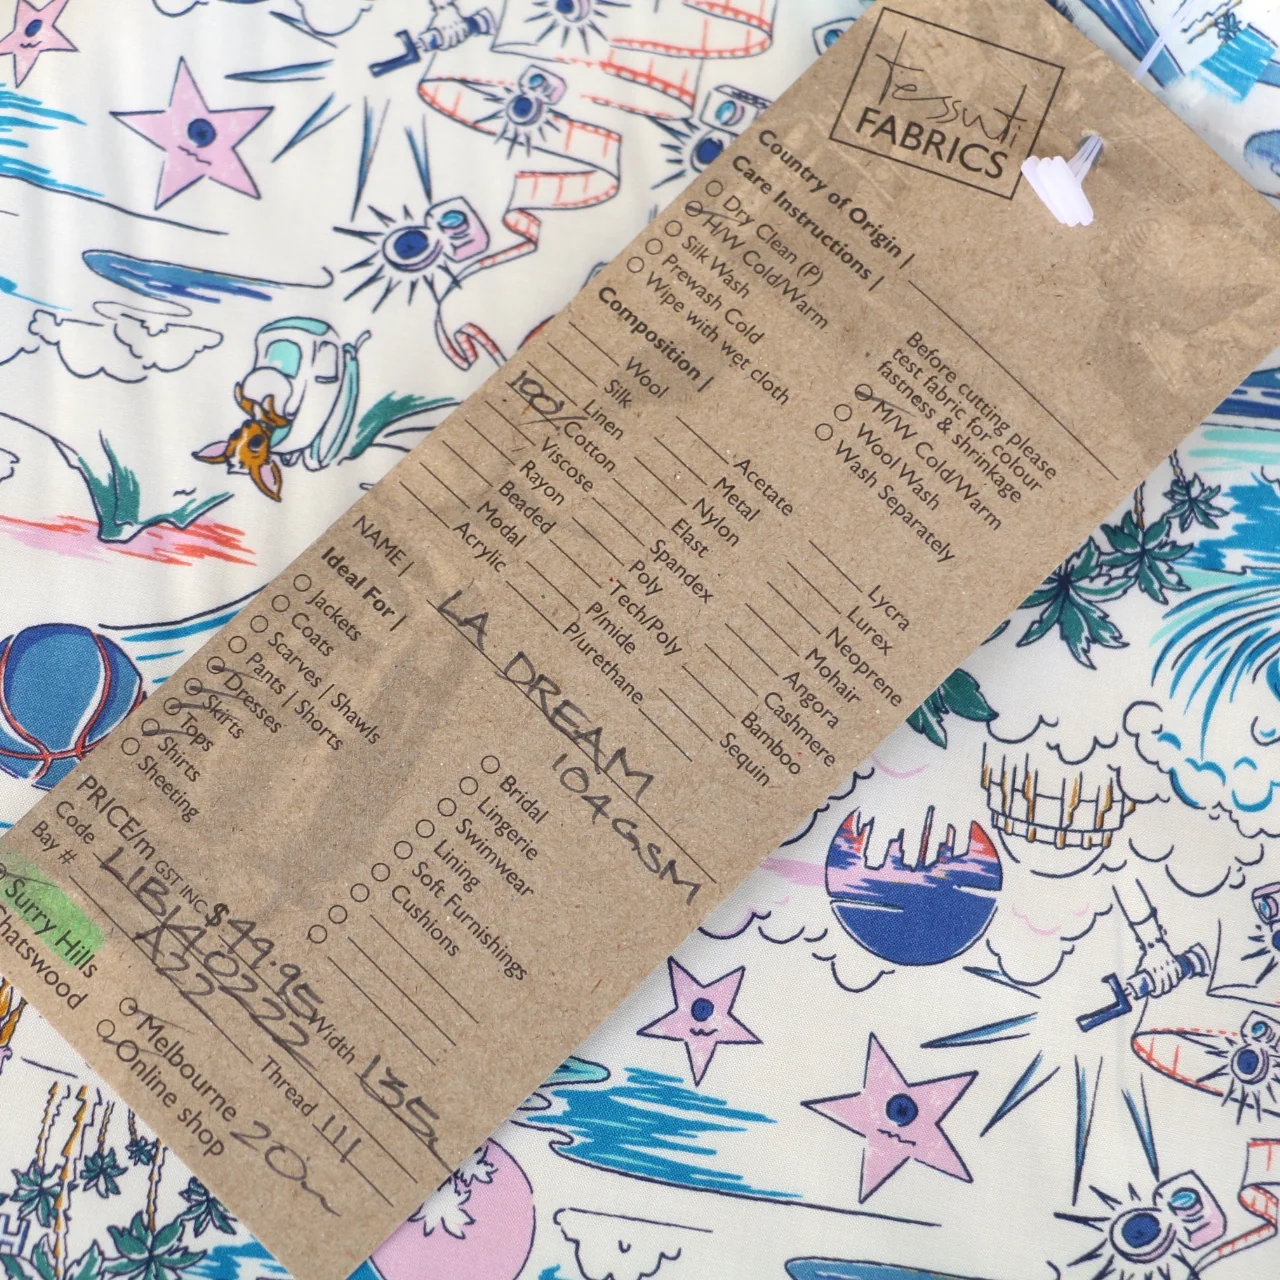 tessuti
FABRICS
Country of Origin |
Care Instructions |
Dry Clean (P)
H/W Cold/Warm
Silk Wash
Prewash Cold
Wipe with wet cloth
Before cutting please
test fabric for colour
fastness & shrinkage
M/W Cold/Warm
Wool Wash
Wash Separately
Composition |
Wool
Silk
Linen
100% Cotton
Viscose
Rayon
Beaded
Modal
Acrylic
Acetate
Metal
Nylon
Elast
Spandex
Poly
Tech/Poly
P/mide
P/urethane
Lycra
Lurex
Neoprene
Mohair
Angora
Cashmere
Bamboo
Sequin
NAME | LA DREAM
104GSM
Ideal For |
Jackets
Coats
Scarves | Shawls
Pants | Shorts
Dresses
Skirts
Tops
Shirts
Sheeting
Bridal
Lingerie
Swimwear
Lining
Soft Furnishings
Cushions
PRICE/m GST INC $49.95 Width 135
Code LIB1402222 Thread 111
Bay # A22
Surry Hills
Chatswood
Melbourne
Online shop
20m